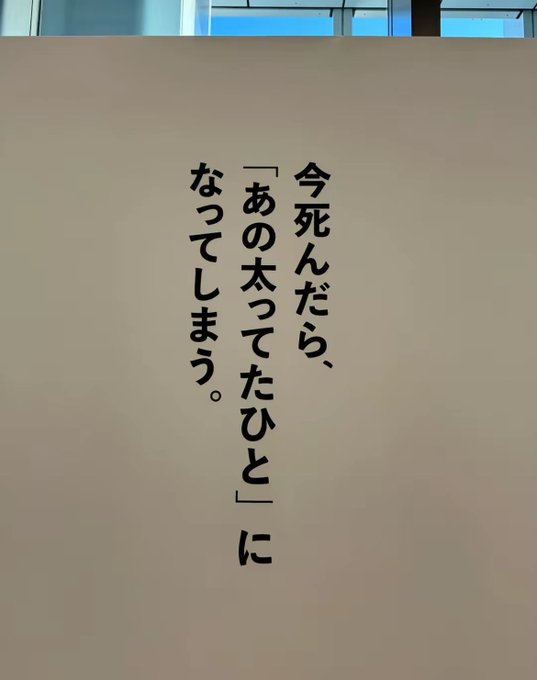 今死んだら、
「あの太ってたひと」に
なってしまう。